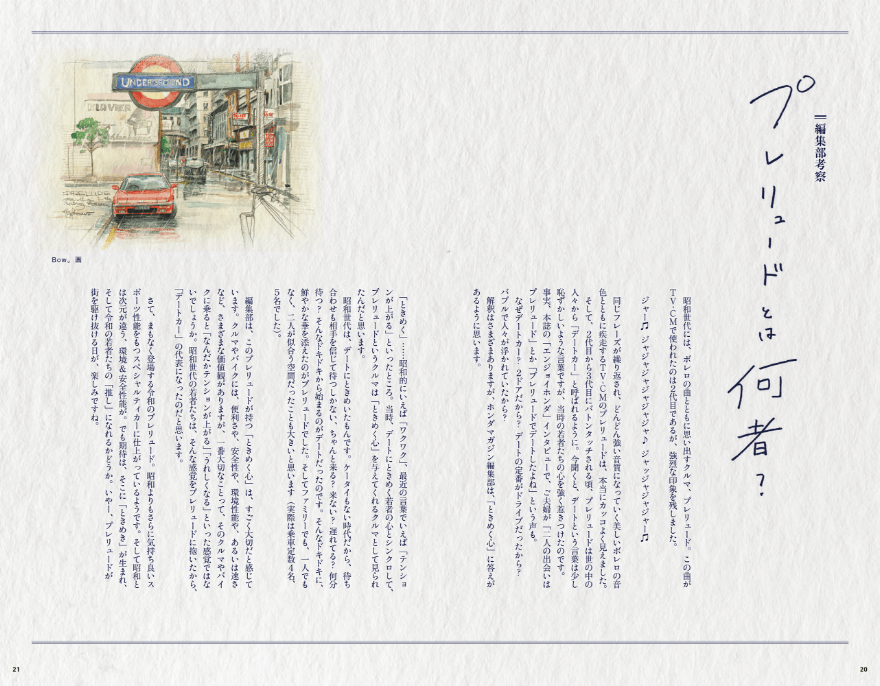 ═編集部考察
プレリュードとは何者？
昭和世代には、ボレロの曲とともに思い出すクルマ、プレリュード。この曲が
TV-CMで使われたのは2代目であるが、強烈な印象を残しました。
ジャー♫ ジャジャジャジャジャジャジャ♪ ジャッジャジャジャー♫
同じフレーズが繰り返され、どんどん強い音質になっていく美しいボレロの音
色とともに疾走するTV-CMのプレリュードは、本当にカッコよく見えました。
そして、2代目から3代目にバトンタッチされる頃、プレリュードは世の中の
人々から「デートカー」と呼ばれるように。今聞くと、デートという言葉は少し
恥ずかしいような言葉ですが、当時の若者たちの心を強く惹きつけたのです。
事実、本誌の「エンジョイホンダ」インタビューで、ご夫妻が「二人の出会いは
プレリュード」とか「プレリュードでデートしたよね」という声も。
なぜデートカー？ 2ドアだから？ デートの定番がドライブだったから？
バブルで人々が浮かれていたから？
解釈はさまざまありますが、ホンダマガジン編集部は、「ときめく心」に答えが
あるように思います。
「ときめく」……昭和的にいえば「ワクワク」、最近の言葉でいえば「テンショ
ンが上がる」といったところ。当時、デートにときめく若者の心とシンクロして、
プレリュードというクルマは「ときめく心」を与えてくれるクルマとして見られ
たんだと思います。
昭和世代は、デートにときめいたもんです。ケータイもない時代だから、待ち
合わせも相手を信じて待つしかない。ちゃんと来る？ 来ない？ 遅れてる？ 何分
待つ？ そんなドキドキから始まるのがデートだったのです。そんなドキドキに、
鮮やかな華を添えたのがプレリュードでした。そしてファミリーでも、一人でも
なく、二人が似合う空間だったことも大きいと思います（実際は乗車定数4名、
5名でした）。
編集部は、このプレリュードが持つ「ときめく心」は、すごく大切だと感じて
います。クルマやバイクには、便利さや、安全性や、環境性能や、あるいは速さ
など、さまざまな価値観がありますが、一番大切なことって、そのクルマやバイ
クに乗ると「なんだかテンションが上がる」「うれしくなる」といった感覚ではな
いでしょうか。昭和世代の若者たちは、そんな感覚をプレリュードに抱いたから、
「デートカー」の代表になったのだと思います。
さて、まもなく登場する令和のプレリュード。昭和よりもさらに気持ち良いス
ポーツ性能をもつスペシャルティカーに仕上がっているようです。そして昭和と
は次元が違う、環境＆安全性能が。でも期待は、そこに「ときめき」が生まれ、
そして令和の若者たちの「推し」になれるかどうか。いやー、プレリュードが
街を駆け抜ける日が、楽しみですね。
UNDERGROUND
Bow。画
21
20